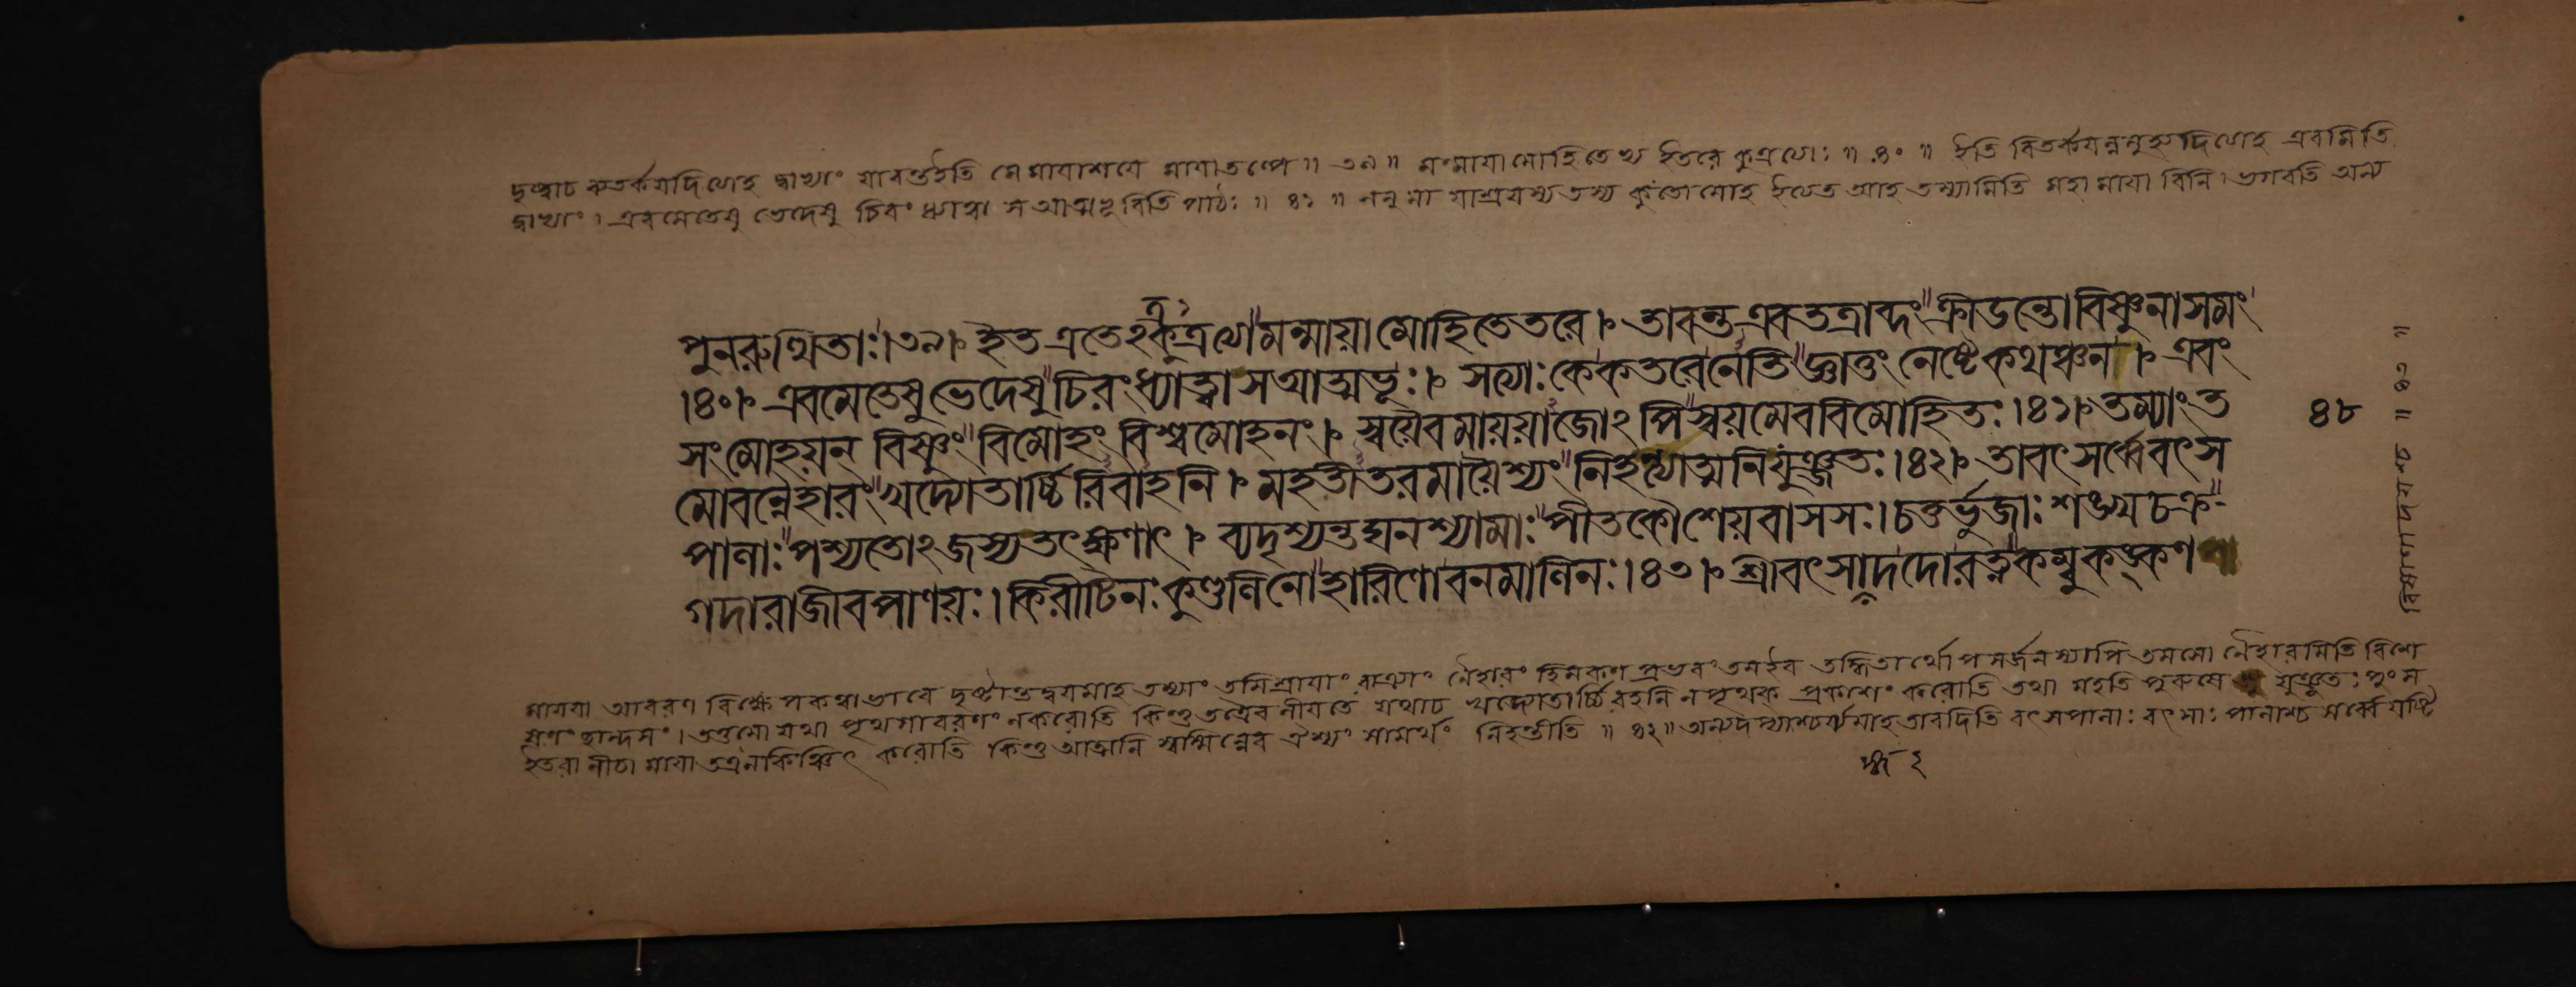 দৃষ্ট্বাচ বিতর্কযদিত্যাহ দ্বাভ্যাং যাবন্তইতি মে মায়াশয়ে মায়াতল্পে ॥ ৩৯ ॥ মন্মায়ামোহিতেভ্য ইতরে কুত্রত্যাঃ ॥ ৪০ ॥ ইতি বিতর্কযন্নমুহ্যদিত্যাহ এবমিতি
দ্বাভ্যাং। এবমেতেষু ভেদেষু চিরং ধ্যাত্বা স আত্মভূরিতি পাঠঃ ॥ ৪১ ॥ ননু মায়াশ্রয়স্য তস্য কুতো মোহ ইত্যত আহ তম্যামিতি মহামায়াবিনি ভগবতি অন্য
পুনরুত্থিতাঃ।৩৯। ইত এতেঽত্র কুত্রত্যা মন্মায়ামোহিতেতরে। তাবন্ত এব তত্রাব্দং ক্রীডন্তো বিষ্ণুনা সমং
।৪০। এবমেতেষু ভেদেষু চিরং ধ্যাত্বা স আত্মভূঃ। সত্যাঃ কে কতরে নেতি জ্ঞাতুং নেষ্টে কথঞ্চন। এবং
সংমোহয়ন্ বিষ্ণুং বিমোহং বিশ্বমোহনং। স্বয়ৈব মায়য়াজোঽপি স্বয়মেব বিমোহিতঃ।৪১। তম্যাং ত
মোবন্নৈহারং খদ্যোতার্চ্চিরিবাহনি। মহতীতরমায়ৈশ্যং নিহন্ত্যাত্মনি যুঞ্জতঃ।৪২। তাবৎ সর্ব্বে বৎস
পানাঃ পশ্যতোঽজস্য তৎক্ষণাৎ। ব্যদৃশ্যন্ত ঘনশ্যামাঃ পীতকৌশেয়বাসসঃ। চতুর্ভুজাঃ শঙ্খচক্র-
গদারাজীবপাণয়ঃ। কিরীটিনঃ কুণ্ডলিনো হারিণো বনমালিনঃ।৪৩। শ্রীবৎসাঙ্গদদোরত্নকম্বুকঙ্কণ
৪৮
॥ ৪৩ ॥
মায়য়া আবরণ বিক্ষেপকত্বাভাবে দৃষ্টান্তদ্বয়মাহ তম্যাং তমিস্রায়াং রাত্র্যাং নৈহারং হিমকণপ্রভবং তমইব তদ্ধিতার্থোপসর্জনস্যাপি তমসো নৈহারমিতি বিশে
ষণং ছান্দসং। তত্তমো যথা পৃথগাবরণং নকরোতি কিন্তু তত্রৈব লীয়তে যথাচ খদ্যোতার্চ্চিরহনি নপৃথক্ প্রকাশং করোতি তথা মহতি পুরুষে যুঞ্জতঃ পুংস
ইতরা নীচা মায়া তত্র নকিঞ্চিৎ করোতি কিন্তু আত্মনি স্বস্মিন্নেব ঐশ্যং সামর্থ্যং নিহন্তীতি ॥ ৪২ ॥ অন্যদপ্যাশ্চর্য্যমাহ তাবদিতি বৎসপালাঃ বৎসাঃ পালাশ্চ সর্ব্বে যষ্টি